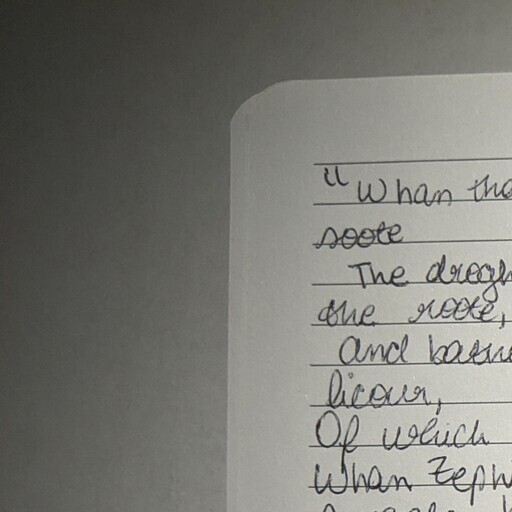 "Whan tha
soote
The dregh
the roote,
and bathe
licour,
Of which
Whan Zeph